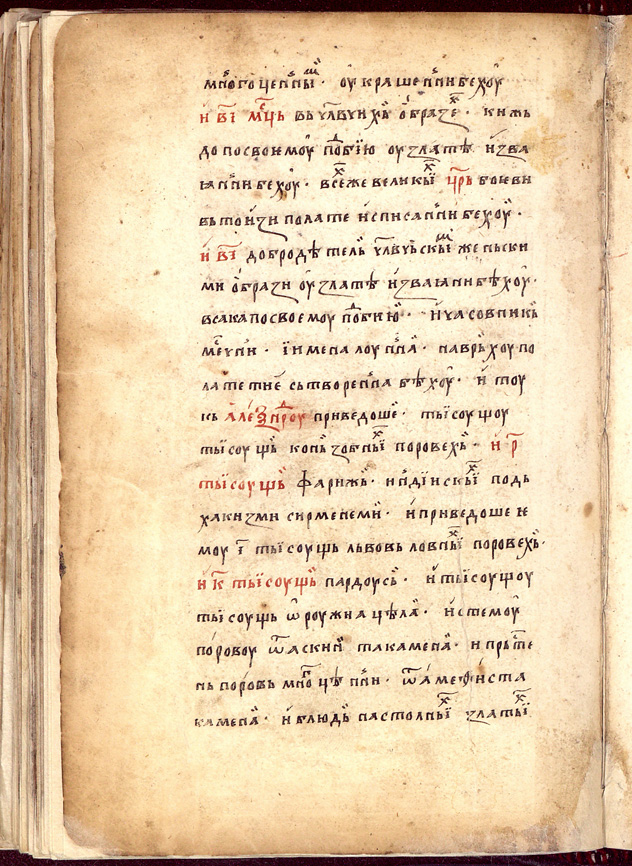 мн҃огоцен҆ныⷨ · оу҆крашен҆ни бехоу҆
и҆ в҃і мⷭ҇ць въ ч҃лвчихь ѻ҆бразеⷯ · кнжь
до по своемоу҆ поⷣбїю оу злате и҆зва
ꙗн҆ни бехоу҆ · всеⷯ же великыⷯ ц҃рь боеви
вь тои҆зи полате и҆списан҆ни бехоу҆ ·
и҆ в҃і добродѣтель ч҃лвчьскыⷨ женьски
ми ѻ҆брази оу злате и҆зваꙗни бѣхоу҆ ·
всака по своемоу поⷣбию҆ · и҆ часовникь
мⷭ҇ечн҆и · ї имена лоун҆на҆ · на врьхоу по
лате тⷪ҇не сьтворен҆на бѣхоу҆ · и҆ тоу
кь але҆ѯаⷣнроу приведоше҆ · тыісоущоу
тыісоущь конь зобныⷯ поровехь · и҆ р҃
тыісоущь фарижь · и҆н҆дїискыⷯ подь
хакизми сирмен҆еми҆ · и҆ приведоше ѥ
моу і҃ тыісоущь львовь ловныⷯ поровехь ·
и҆ к҃ тыісоущь пардоусь · и҆ тыісоущоу
тыісоущь ѡ҆роужна цѣла҆ · и҆ стемоу҆
поровоу ѿ аскин҆ та камена҆ · и прьⷭ҇те
нь поровь мноⷢ҇цѣн҆ни · ѿ а҆меѳиста
камена҆ · и҆ блюдь настолныⷯ златыⷯ